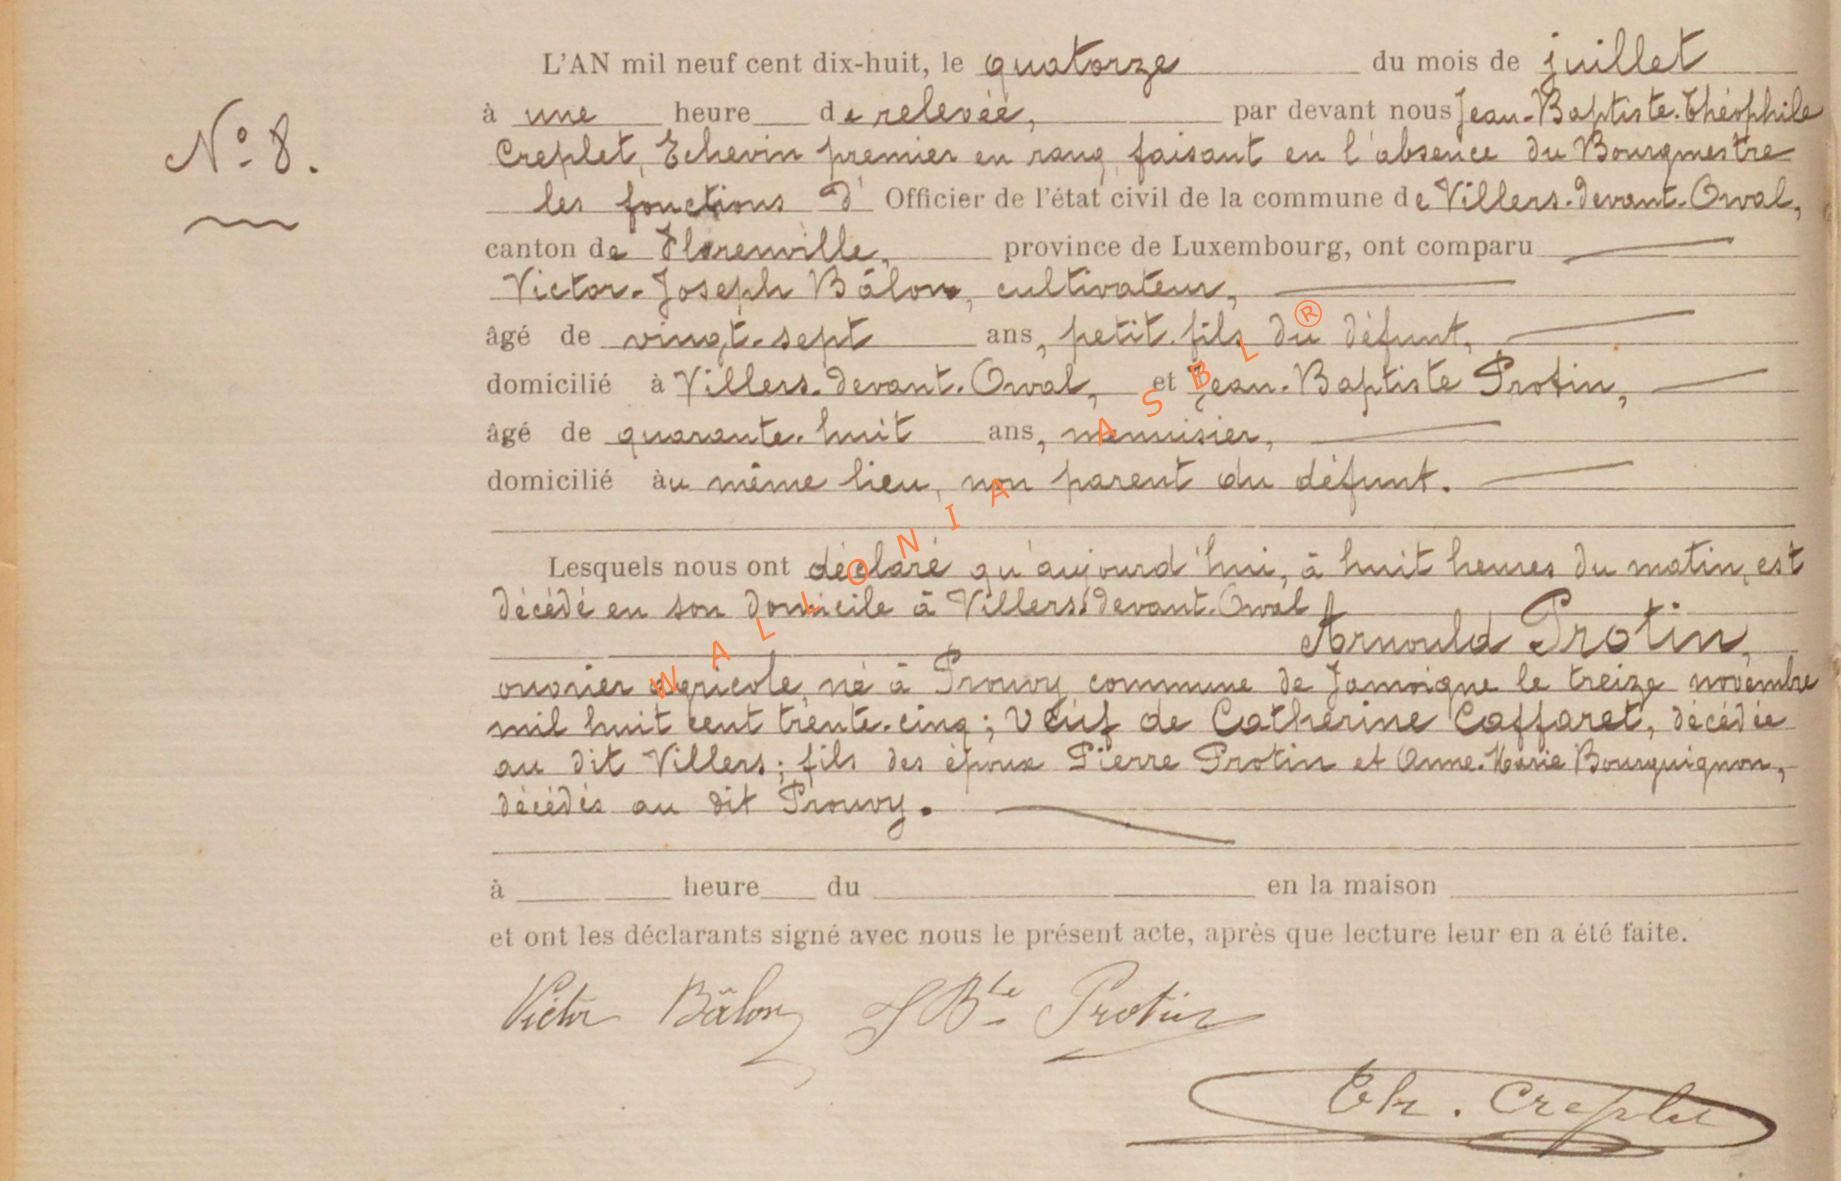 N° 8.
L'AN mil neuf cent dix-huit, le quatorze du mois de juillet
à une heure de relevée, par devant nous Jean-Baptiste-Théophile
Creplet, Echevin premier en rang, faisant en l'absence du Bourgmestre
les fonctions d' Officier de l'état civil de la commune de Villers-devant-Orval,
canton de Florenville, province de Luxembourg, ont comparu
Victor-Joseph Bâlon, cultivateur,
âgé de vingt-sept ans, petit-fils du défunt,
domicilié à Villers-devant-Orval, et Jean-Baptiste Protin,
âgé de quarante-huit ans, menuisier,
domicilié au même lieu, non parent du défunt.
Lesquels nous ont déclaré qu'aujourd'hui, à huit heures du matin, est
décédé en son domicile à Villers-devant-Orval
Arnould Protin,
ouvrier agricole, né à Prouvy commune de Jamoigne le treize novembre
mil huit cent trente-cinq; veuf de Catherine Caffaret, décédée
au dit Villers; fils des époux Pierre Protin et Anne-Marie Bourguignon,
décédés au dit Prouvy.
à heure du en la maison
et ont les déclarants signé avec nous le présent acte, après que lecture leur en a été faite.
Victor Bâlon JBte Protin
Th. Creplet
WALLONIA ASBL ®